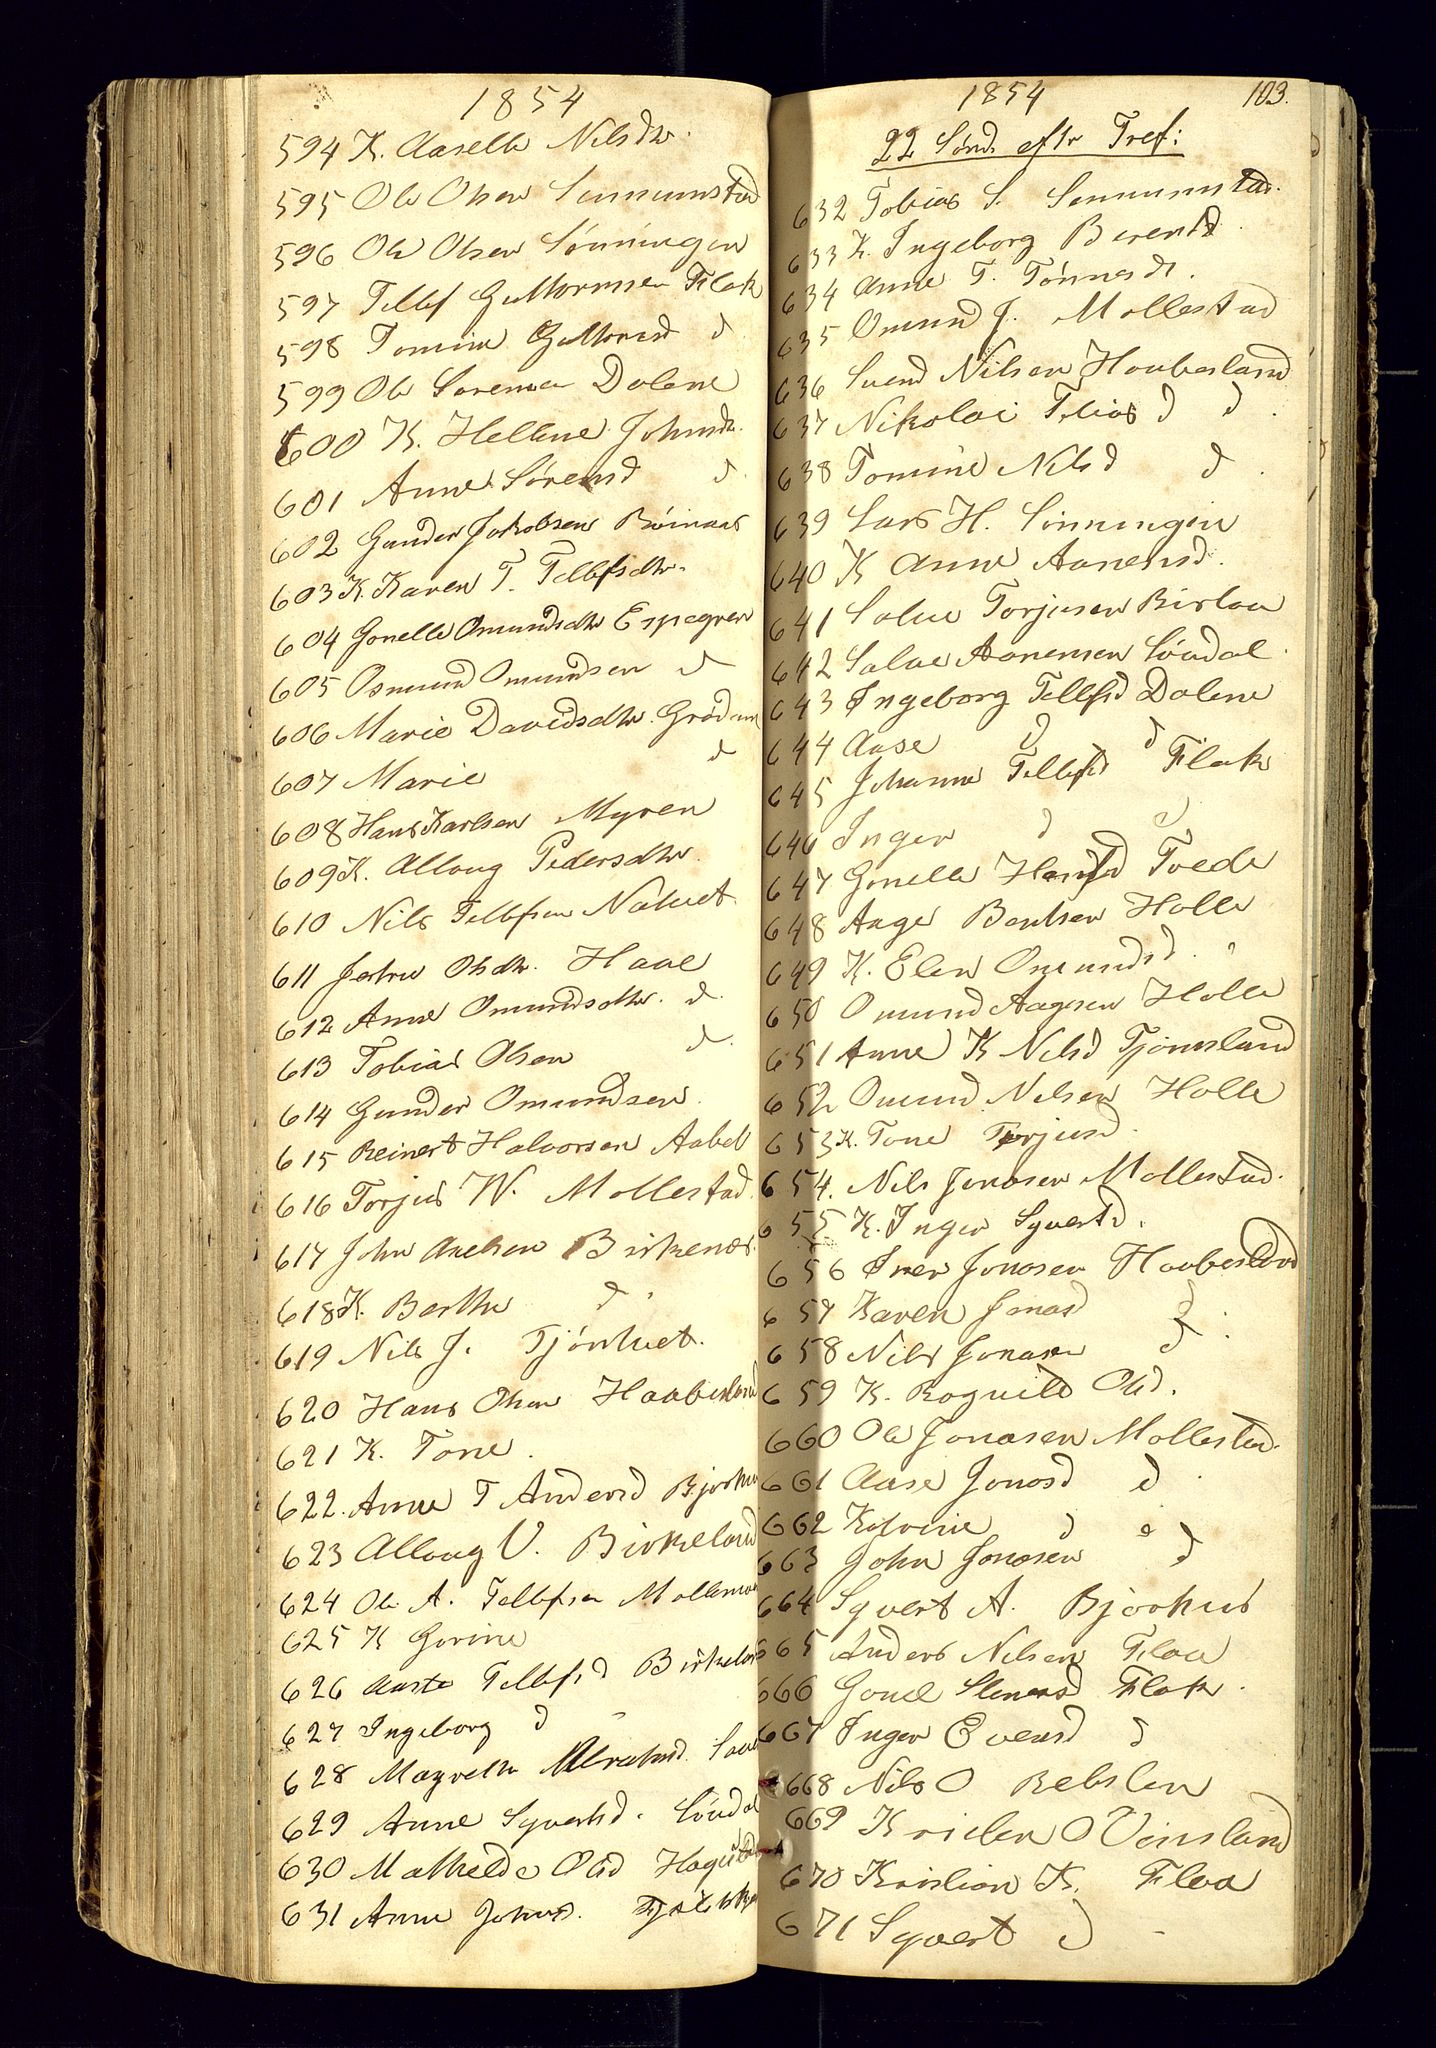 1854
594 K. Aaselle Nilsdtr.
595 Ole Olsen Senumstad
596 Ole Olsen Sønningen
597 Tellef Guttormsen Flak
598 Tomine Guttormsd d
599 Ole Sørensen Dolene
600 K. Hellene Johnsdtr.
601 Anne Sørensd d.
602 Gunder Jakobsen Røinaas
603 K. Karen T. Tellefsdtr.
604 Gonelle Omundsdtr Espegren
605 Osmund Omundsen d
606 Marie Davidsdtr. Grødum
607 Marie d
608 Hans Karlsen Myren
609 K. Alloug Pedersdtr.
610 Nils Tellefsen
611 Olsdtr. Haave
612 Anne Omundsdtr. d.
613 Tobias Olsen d.
614 Gunder Omundsen.
615 Reinert Halvorsen Aabel
616 Torjus W. Mollestad.
617 John Axelsen Birkenæs.
618 K. Berthe d.
619 Nils J. Tjønhvet.
620 Hans Olsen Haabesland
621 K. Tone.
622. Anne T Andersd Bjorhus
623 Alloug V. Birkeland
624 Ole A. Tellefsen Mollemoen
625 K Gorine
626 Aaste Tellefsd Birkeland
627 Ingeborg d "
628 Magrethe Abrahmsd.
629 Anne Syvertsd. Søvdal
630 Mathelde Olsd
631 Anne Johnsd.
1854 103.
22 Sønd. eftr Tref:
632 Tobias S. Senumstad.
633 K. Ingeborg Berentsd.
634 Anne T. Tønnesdt.
635 Omund J. Mollestad
636 Svend Nilsen Haabesland
637 Nikolai Tobias d d.
638 Tomine Nilsd d.
639 Lars H. Sønningen
640 K Anne Aanensd.
641 Salve Torjusen Birkeland
642 Salve Aanensen Søvdal.
643 Ingeborg Tellefsd Dolene
644 Aase d d
645 Johanne Tellefsd Flak
646 Inger d d
647 Gonelle Hansd Tvede
648 Aage Bentsen Holle
649 K. Elen Omundsd.
650 Omund Aagesen Holle
651 Anne K Nilsd Tjønnsland
652 Omund Nilsen Holle
653 K. Tone Torjusd.
654. Nils Jonasen Mollestad.
655 K. Inger Syvertsd.
656 Iver Jonasen Haabesland
657 Karen Jonasd d.
658 Nils Jonasen d
659 K. Rognild Olsd.
660 Ole Jonasen Mollestad.
661 Aase Jonasd d
662 d d
663 John Jonasen d
664 Syvert A. Bjorhus
665 Anders Nilsen Flaa
666 Gonel Stenersd Flak.
667 Inger Evensd d
668 Nils O Rebslen
669 Kristen O Vinsland
670 Kristian K. Flaa
671 Syvert d -